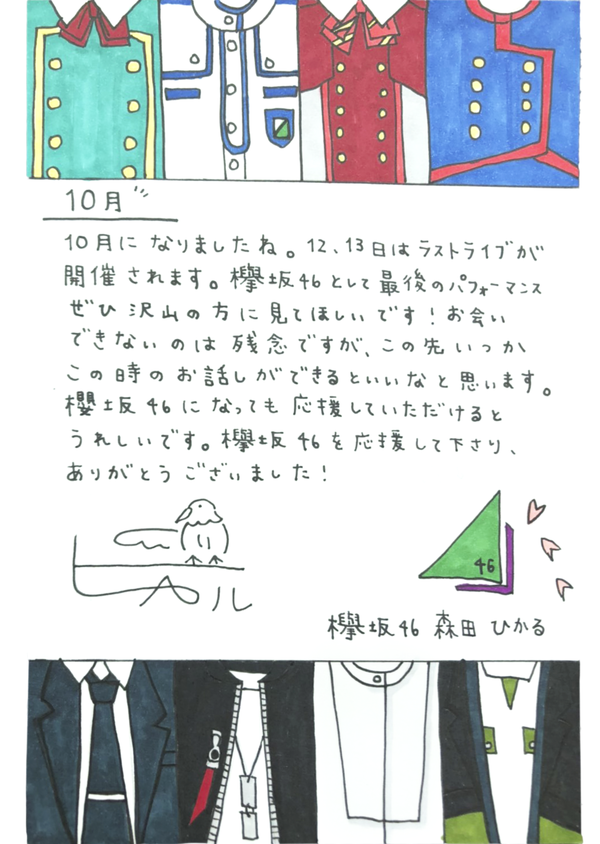 10月
10月に なりましたね。12、13日は ラストライブが
開催 されます。欅坂46として 最後の パフォーマンス
ぜひ 沢山の 方に 見てほしいです！お会い
できない のは 残念 ですが、この先 いつか
この 時の お話し ができる といいな と 思います。
櫻坂 46 に なっても 応援していただけると
うれしいです。欅坂 46 を 応援 して 下さり、
ありがとう ございました！
46
欅坂46 森田 ひかる